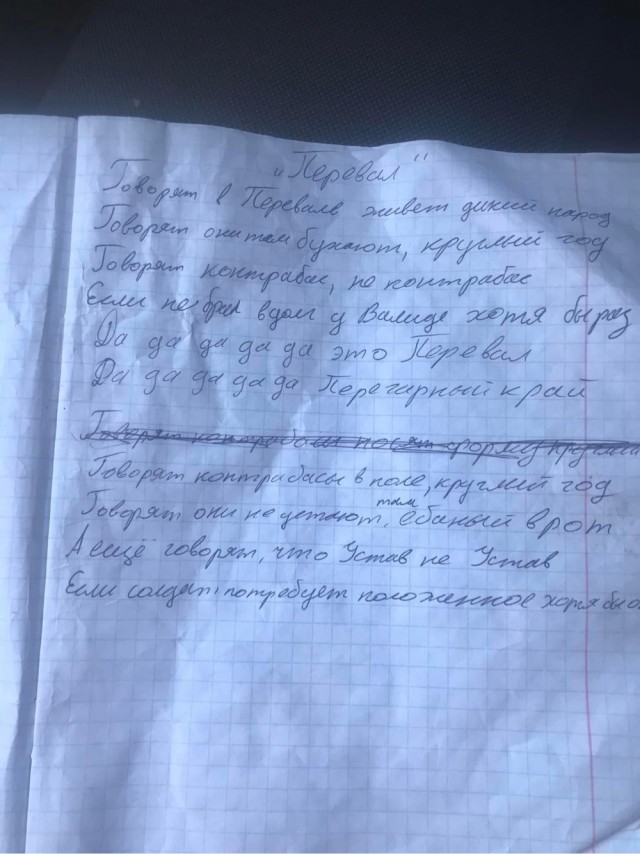 „Перевал"
Говорят в Перевале живет дикий народ
Говорят они там бухают, круглый год
Говорят контрабас, не контрабас
Если не брал в долг у Валида хотя бы раз
Да да да да да это Перевал
Да да да да да Перегарный край
Говорят контрабасы носят форму круглый
Говорят контрабасы в поле, круглый год
Говорят они не устают, там ебаный в рот
А ещё говорят, что Устав не Устав
Если солдат потребует положенное хотя бы